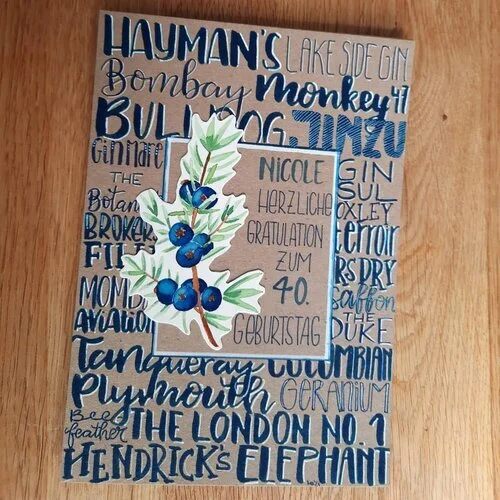 HAYMAN'S LAKE SIDE GIN
Bombay Monkey 47
BULLDOG JINZU
Gin Mare
THE
Botan
BROKERS
FI
MOMB
AVIATION
NICOLE
HERZLICHE
GRATULATION
ZUM
40.
GEBURTSTAG
GIN
SUL
OXLEY
terroir
RS DRY
Saffron
THE
DUKE
Tanqueray COLUMBIAN
Plymouth GERANIUM
Bee
feather THE LONDON NO. 1
HENDRICK'S ELEPHANT